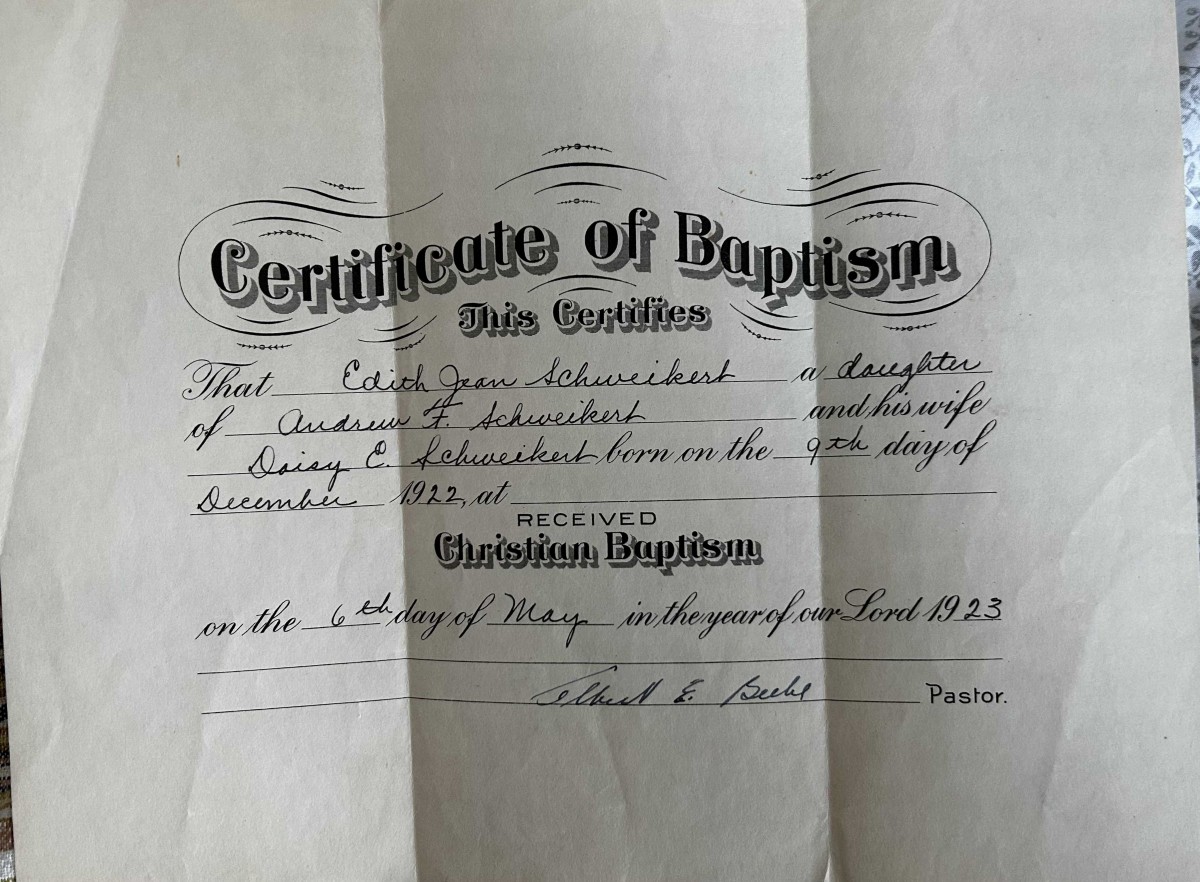 Certificate of Baptism
This Certifies
That Edith Jean Schweikert a daughter
of Andrew F. Schweikert and his wife
Daisy E. Schweikert born on the 9th day of
December 1922, at
RECEIVED
Christian Baptism
on the 6th day of May in the year of our Lord 1923
E. Pastor.